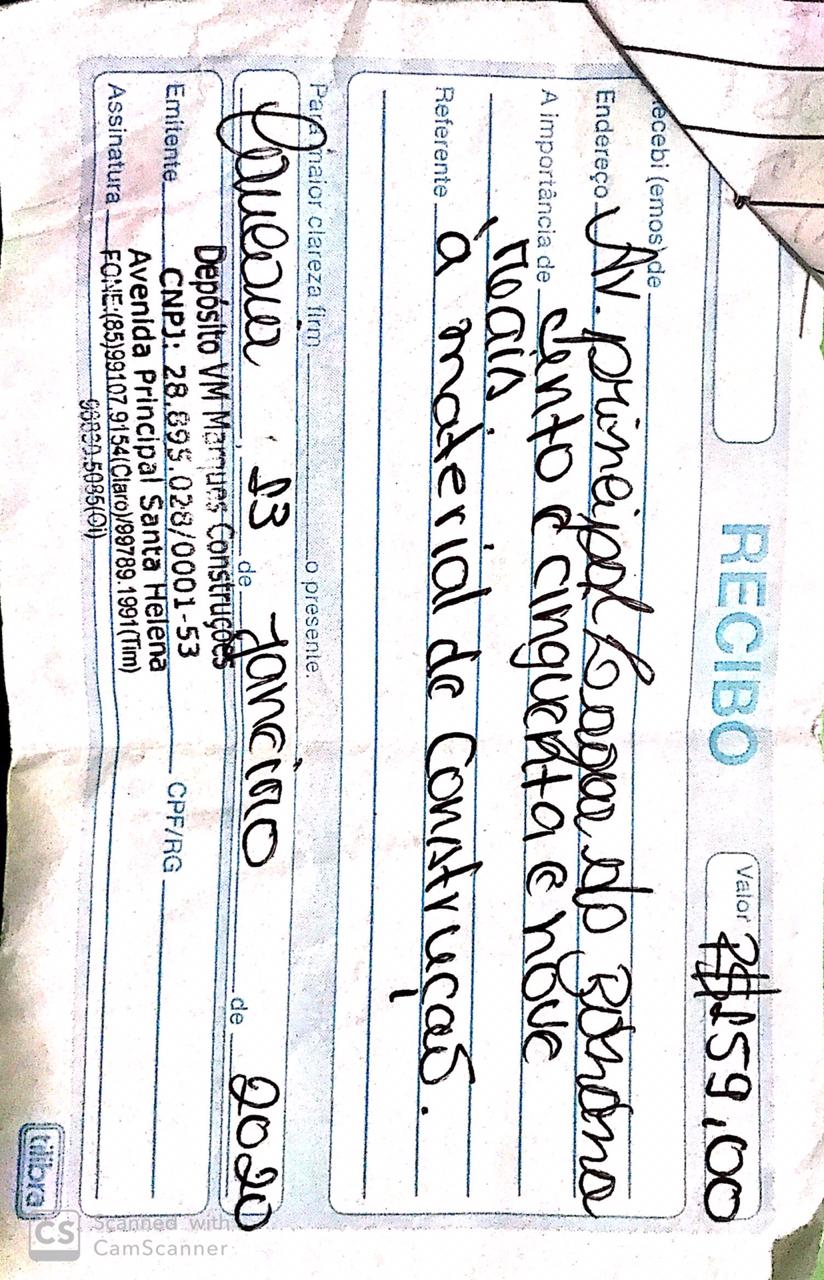 RECIBO
Valor R$ 159,00
ecebi (emos) de
Endereço Av. principal Lagoa do Banana
A importância de cinto e cinquenta e nove
reais
Referente à material de Construção.
Para maior clareza firm o presente.
Caucaia, 13 de janeiro de 2020
Depósito VM Marques Construções
Emitente CNPJ: 28.895.028/0001-53 CPF/RG
Avenida Principal Santa Helena
Assinatura FONE:(85)99107.9154(Claro)/99789.1991(Tim)
tilibra
CS Scanned with
CamScanner